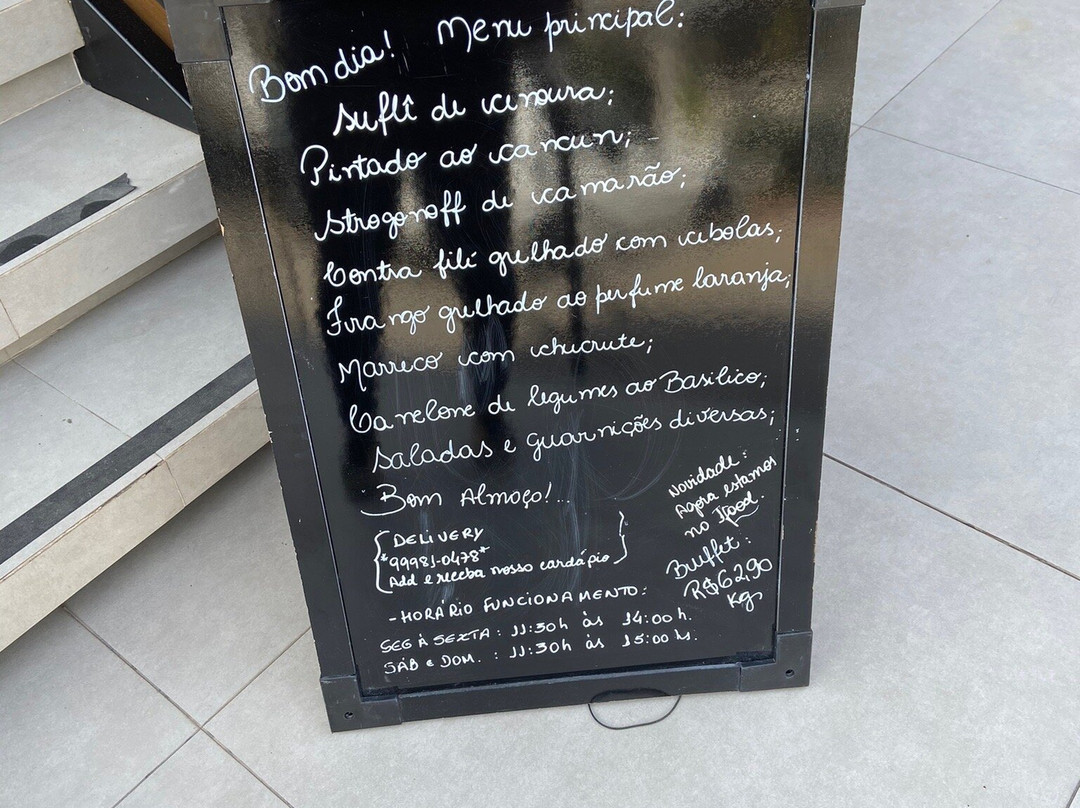 Bom dia! Menu principal:
Suflê de cenoura;
Pintado ao cancun;
Strogonoff de camarão;
Contra filé grelhado com cebolas;
Frango grelhado ao perfume laranja;
Marreco com chucrute;
Canelone de legumes ao Basilico;
Saladas e guarnições diversas;
Bom Almoço!...
DELIVERY
*99981-0478*
Add e receba nosso cardápio
Novidade:
Agora estamos
no Ifood.
Buffet:
R$62,90
Kg
-HORÁRIO FUNCIONAMENTO:
SEG À SEXTA: 11:30h às 14:00h.
SÁB e DOM. : 11:30h às 15:00hs.